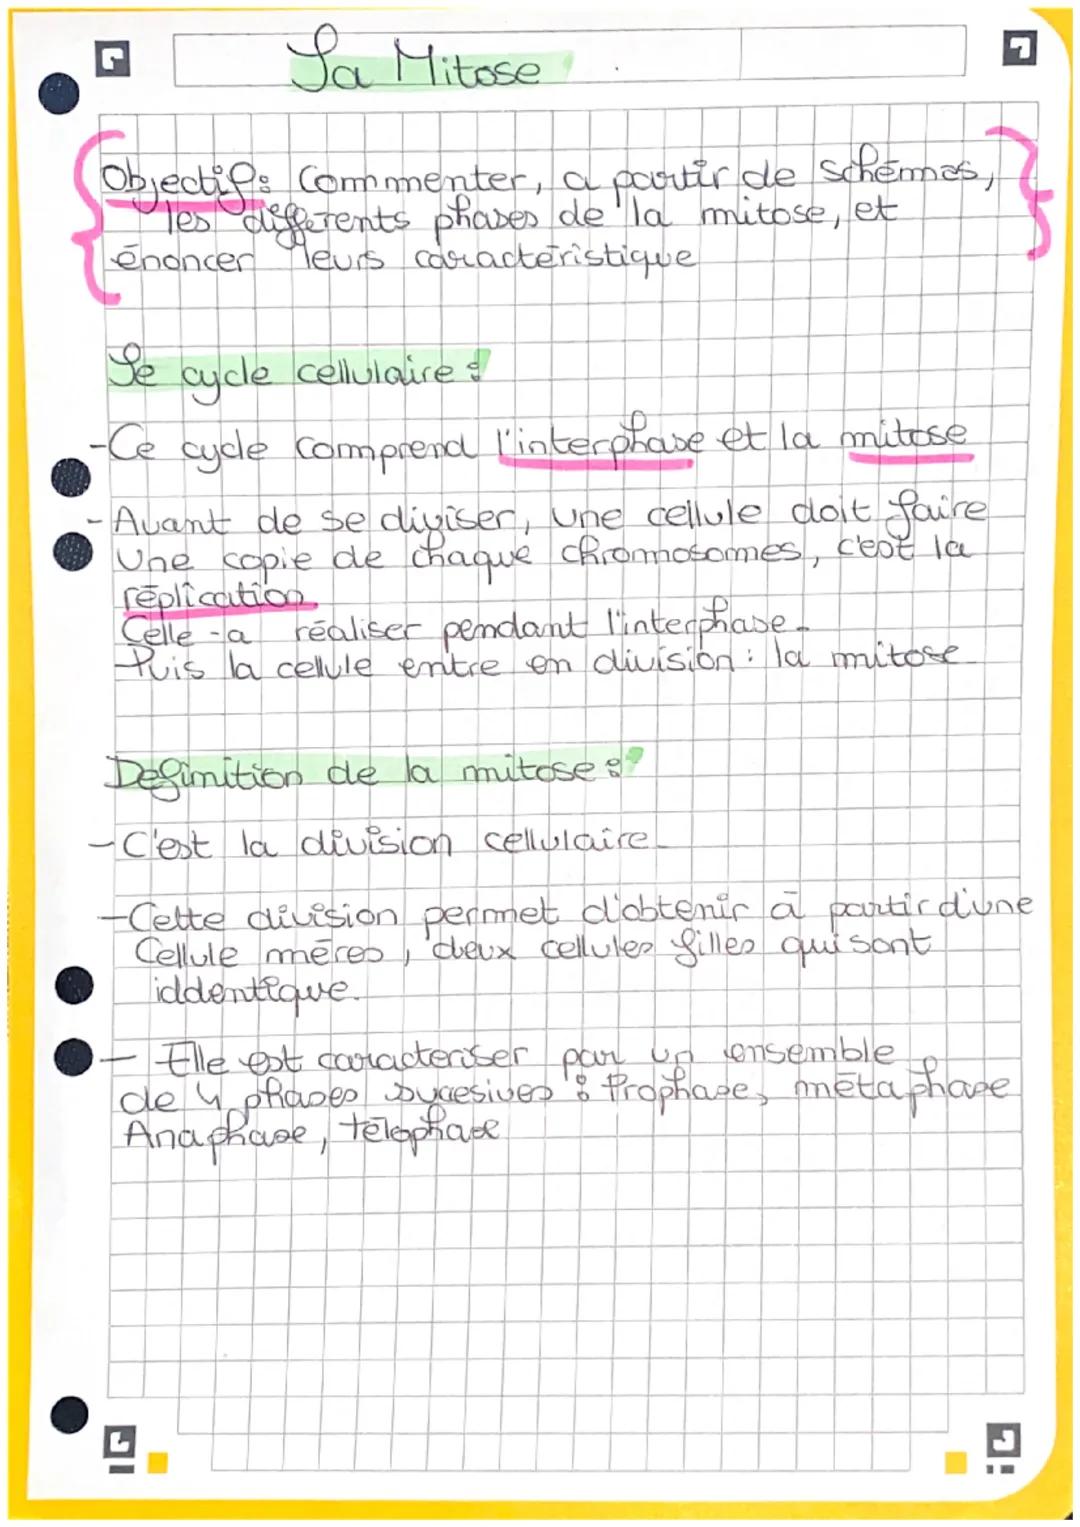 La Mitose
Objectif: Commenter, a partir de schémas,
les différents phases de la mitose, et
énoncer leurs caractéristique
Le cycle cellulaire :
-Ce cycle comprend l'interphase et la mitose
-Avant de se diviser, une cellule doit faire
Une copie de chaque chrommosomes, c'est la
réplication.
Celle-a réaliser pendant l'interphase.
Puis la cellule entre en division : la mitose
Définition de la mitose :
-C'est la division cellulaire.
-Cette division permet d'obtenir à partir d'une
Cellule mères, deux cellules filles qui sont
iddentique.
- Elle est caracteriser par un ensemble
de 4 phases sucesives : Prophase, métaphase
Anaphase, télophase